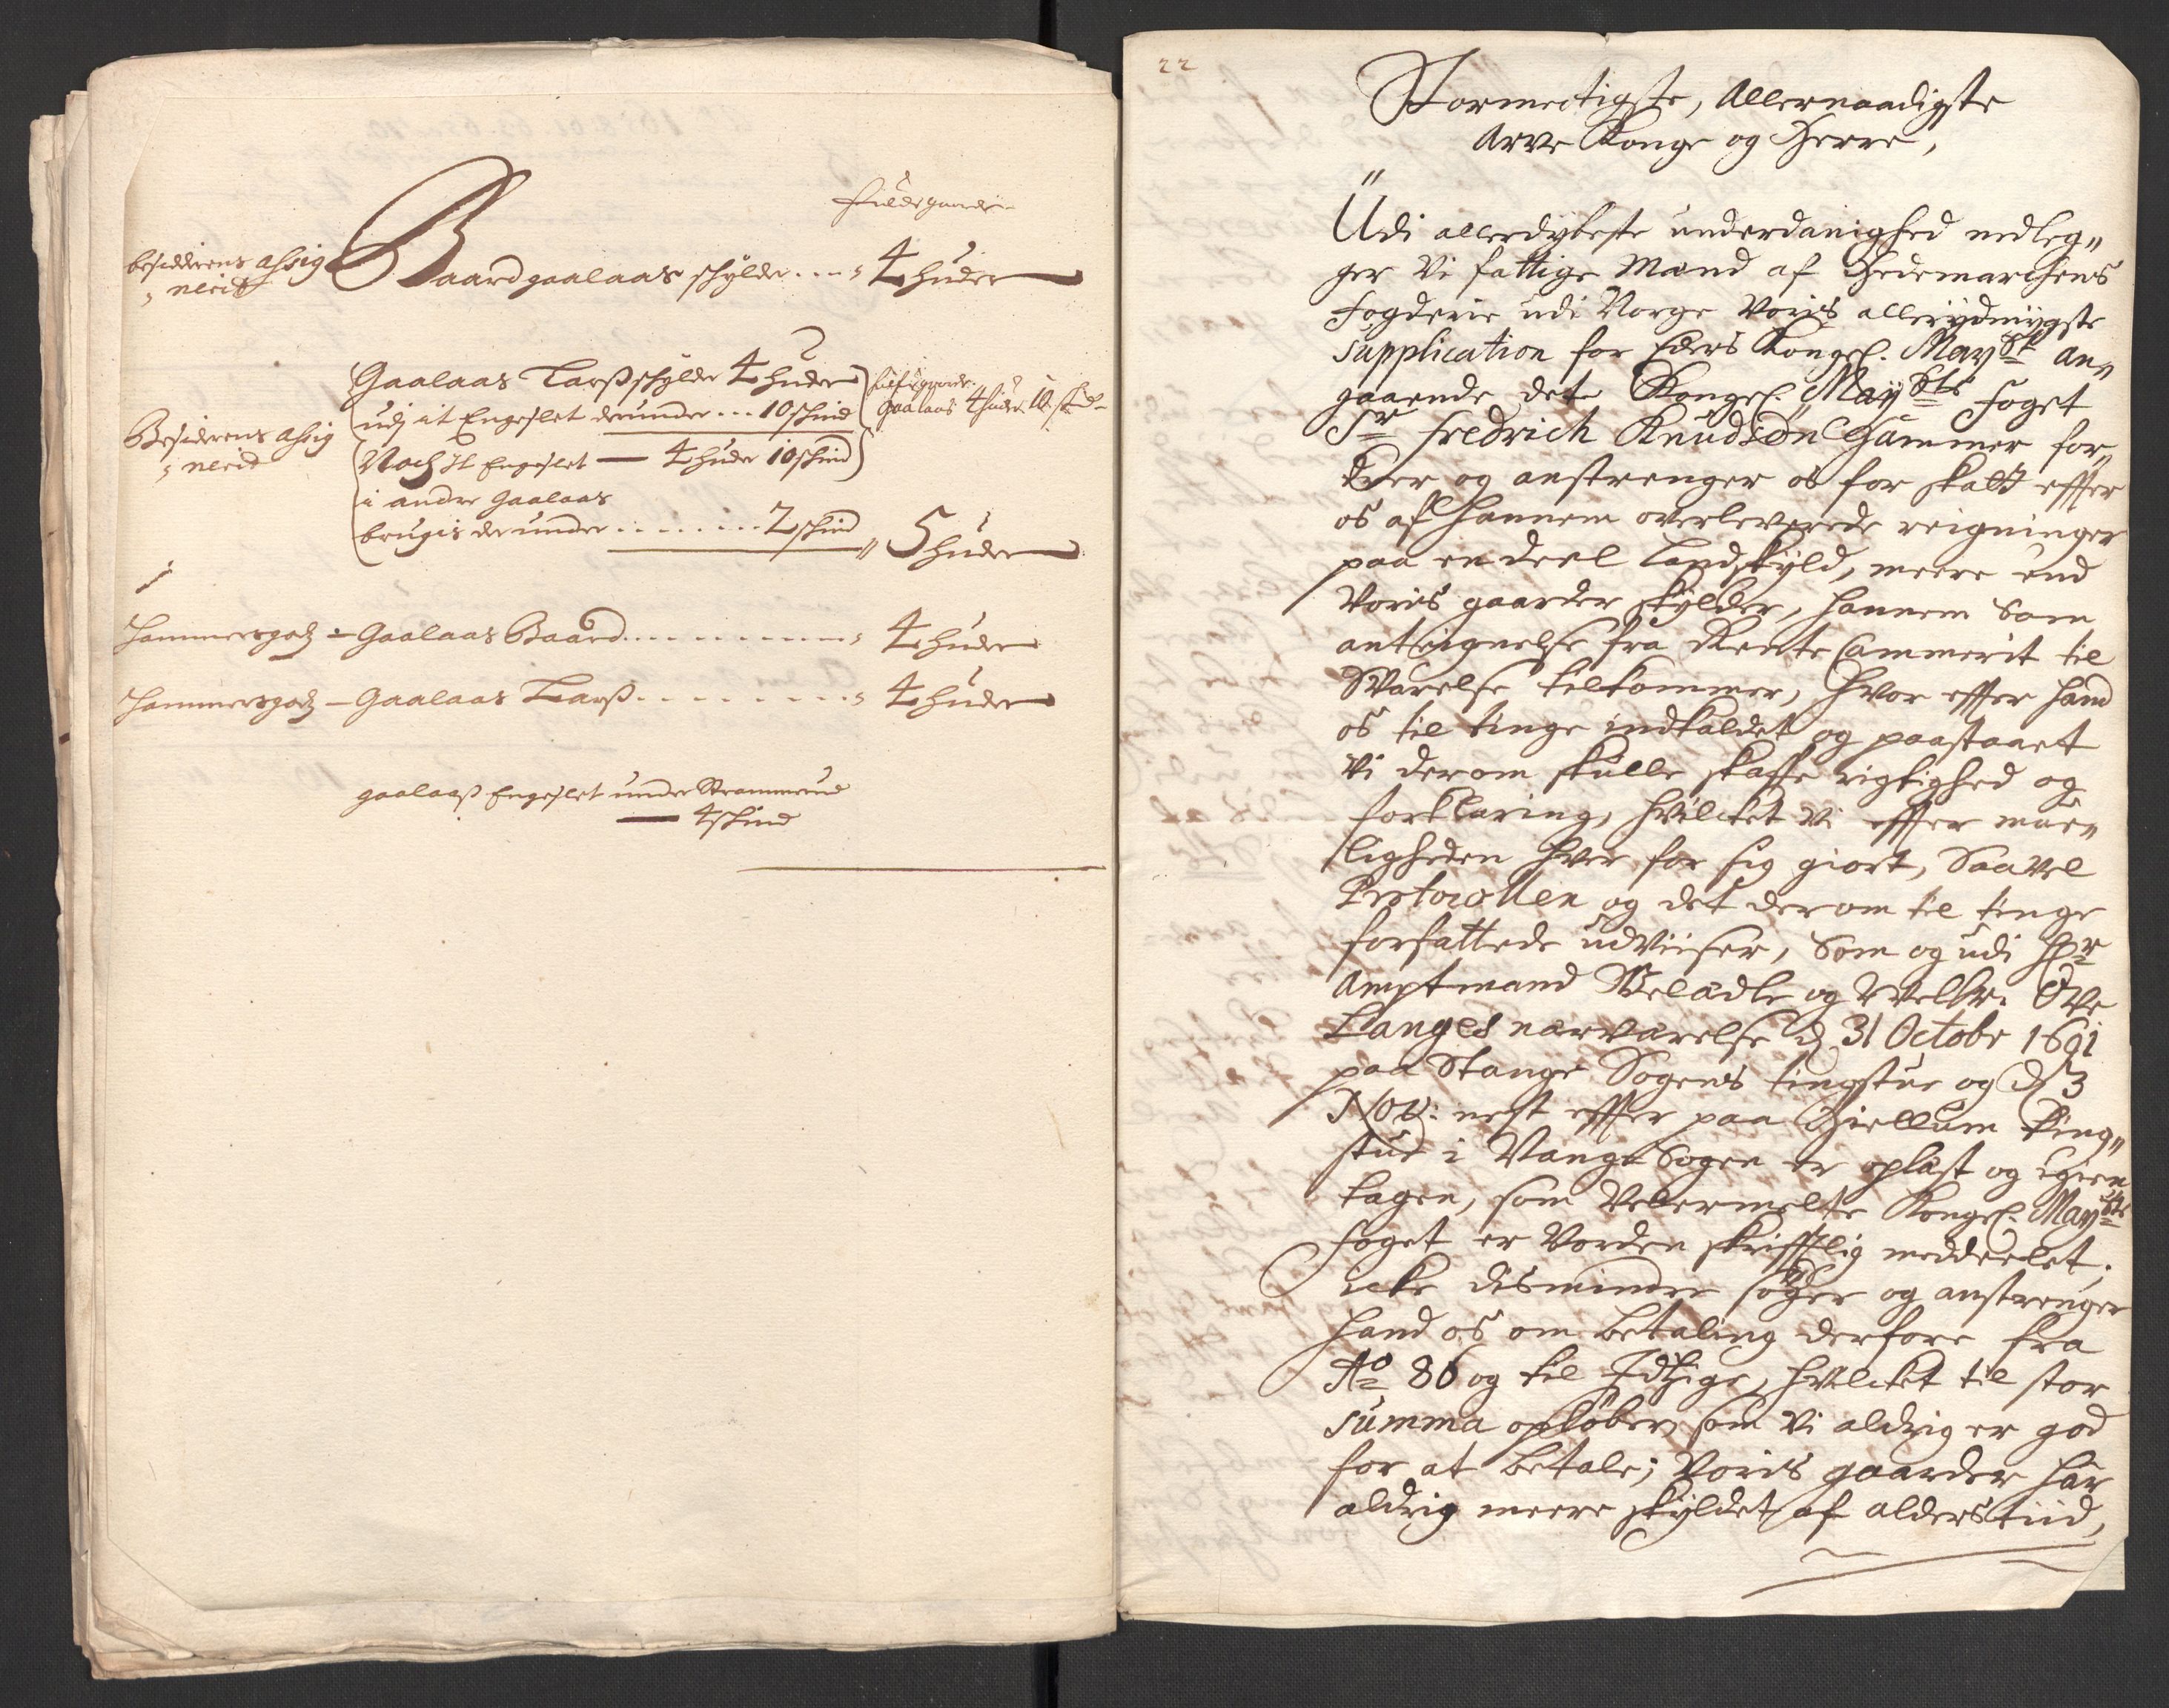 fulde gaarde
besidderens assig
nerit
Baard gaalaas schylde . . . 4 huder
Gaalaas Larss schylde 4 huder
udj it Engeslet derunder . . . 10 schind
gaalaas 4 huder 10 skind
Besiderens assig
nerit
Noch it Engeslet — 4 huder 10 schind
i andre Gaalaas
brugis derunder . . . . . . . . 2 schind
5 huder
Hammersgodz – Gaalaas Baard . . . . . . . . . 4 huder
Hammersgodz – Gaalaas Larss . . . . . . . . 4 huder
gaalaass Engeslet under Strammerud
— 4 schind
22
Stormectigste, Allernaadigste
Arve Konge og Herre,
Udi allerdybeste underdanighed nedleg„
ger Vi fattige Mænd af Hedemarchens
Fogderie udi Norge Voris allerydmygste
supplication for Eders Kongel. Mayst an„
gaaende det Kongel. Maysts Foget
Sr Fredrich Knudsøn Hammer for„
drer og anstrenger os for skatt effter
os af hannem overleverede reigninger
paa en deel Landskyld, meere end
Voris gaarder skylder, hannem som
anteignelse fra Rente Cammerit til
Svarelse tilkommer, hvor effter hand
os til tinge indkaldet og paastaaet
Vi derom skulle skaffe rigtighed og
forklaring, hvilcket Vi effter mue„
ligheden hver for sig giort, Saavel
Protocollen og det derom til tinge
forfattede udviiser, Som og udi Hr
Amptmand Velædle og Velbr. Ove
Langes nærværelse d. 31 Octobr 1691
paa Stange Sogens tingstue og d. 3
Nov: nest effter paa Hiellum ting„
stue i Vangs Sogen er oplæst og igien
tagen, som Velermelte Kongel. Maysts
Foget er Vorden skrifftlig meddeelet,
icke disminder søger og anstrenger
hand os om betaling derfore fra
Ao 86 og til Idtzige, hvilcket til stor
summa opløber, som Vi aldrig er god
for at betale; Voris gaarder har
aldrig meere skyldet af alders tiid,